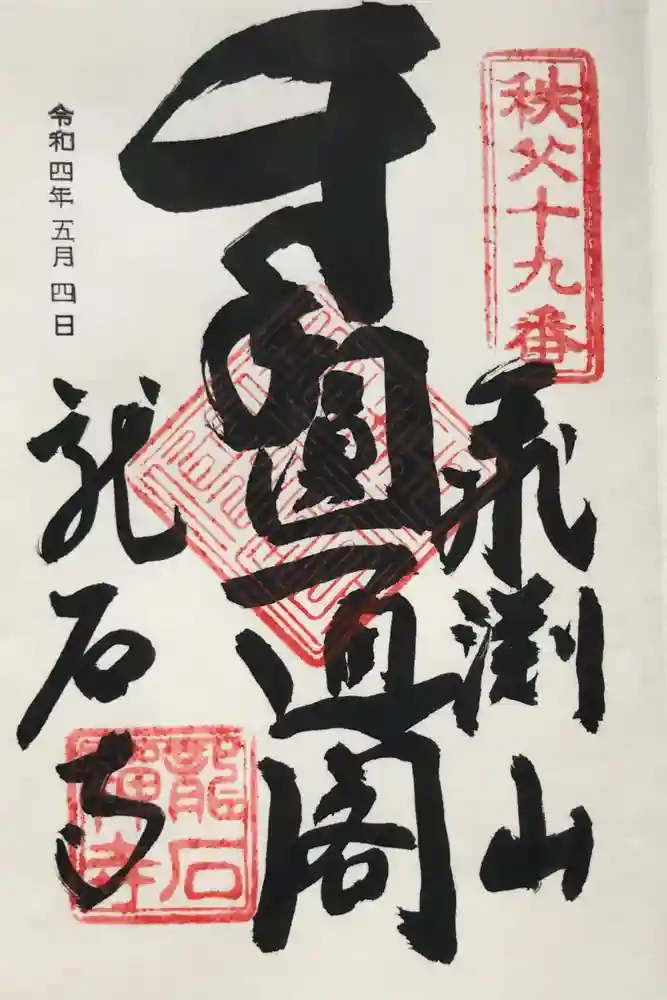 秩父十九番
飛渕山
圓通閣
令和四年五月四日
龍石寺
龍石
寺